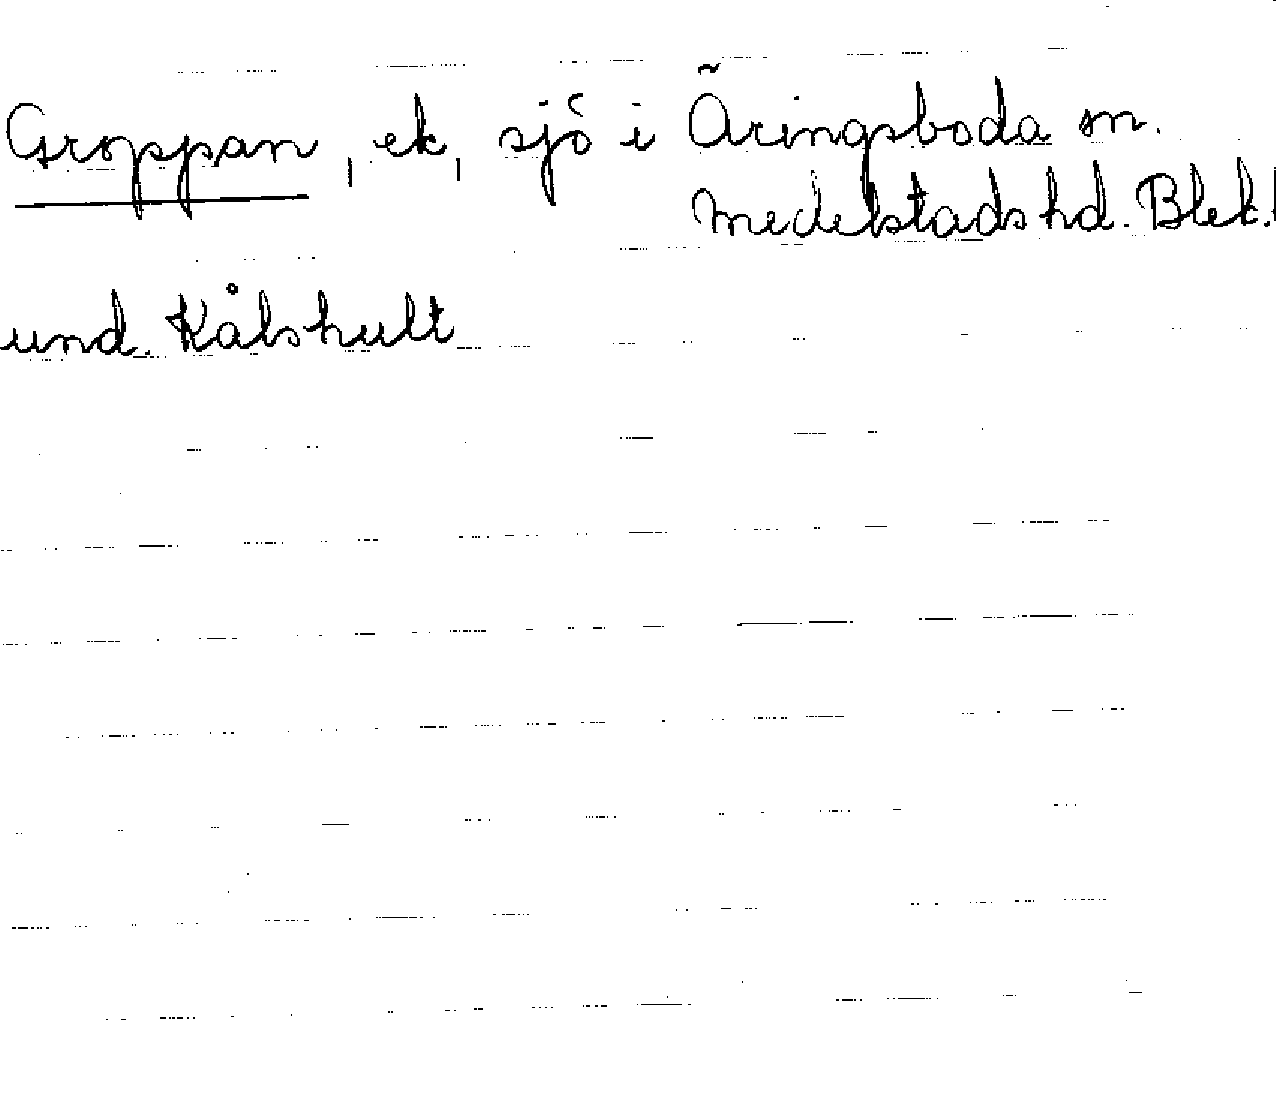 Groppan, ek, sjö i Äringsboda sn.
Medelstads hd. Blek. l
und. Kålshult